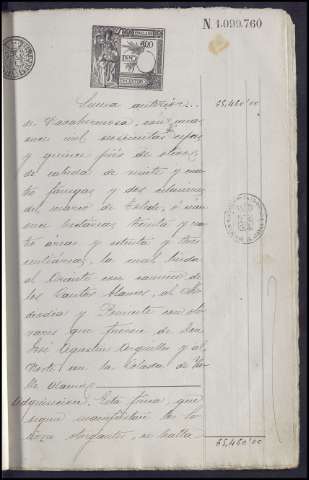 N 1.099.760
Suma anterior
65,480'00
de Casahermosa, con
once mil seiscientas cepas
y quince pies de olivos
de cabida de veinte y cua
tro fanegas y dos celemines
del marco de Toledo, ó sean
hectáreas, treinta y cua
tro áreas y setenta y tres
centiáreas; la cual linda
al Oriente con camino de
los Cantos blancos, al Me
diodia y Poniente con oli
vares que fueron de Don
José Agustin Arguello y al
Norte con la Cañada de Va
lle
Adquisicion. Esta finca, que
segun manifiestan los se
ñores otorgantes, se halla
65,480'00